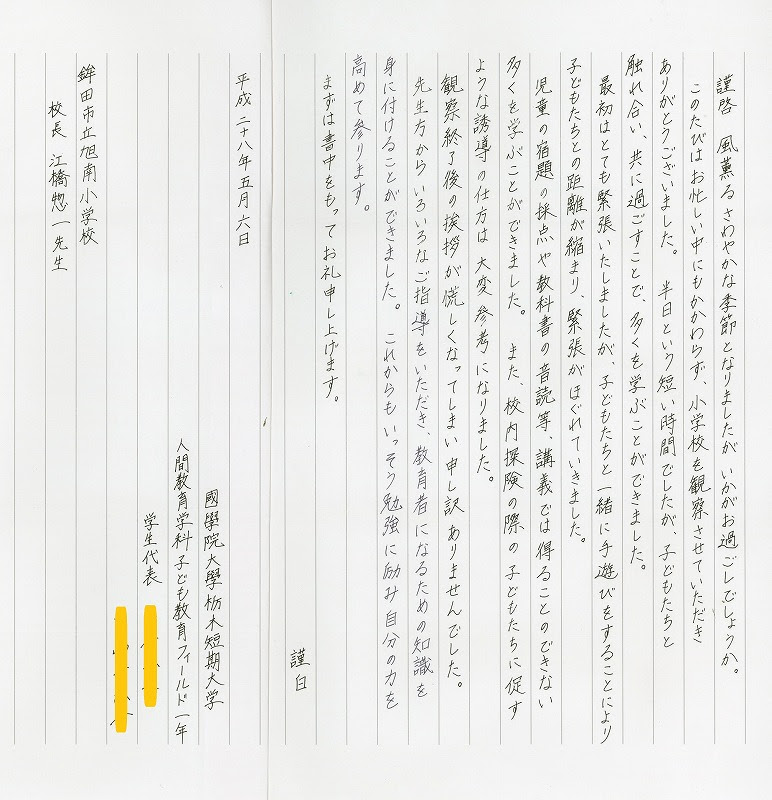 謹啓 風薫るさわやかな季節となりましたがいかがお過ごしでしょうか。
このたびはお忙しい中にもかかわらず、小学校を観察させていただき
ありがとうございました。半日という短い時間でしたが、子どもたちと
触れ合い、共に過ごすことで、多くを学ぶことができました。
最初はとても緊張いたしましたが、子どもたちと一緒に手遊びをすることにより
子どもたちとの距離が縮まり、緊張がほぐれていきました。
児童の宿題の採点や教科書の音読等、講義では得ることのできない
多くを学ぶことができました。また、校内探険の際の子どもたちに促す
ような誘導の仕方は大変参考になりました。
観察終了後の挨拶が慌しくなってしまい申し訳ありませんでした。
先生方からいろいろなご指導をいただき、教育者になるための知識を
身に付けることができました。これからもいっそう勉強に励み自分の力を
高めて参ります。
まずは書中をもってお礼申し上げます。
謹白
平成二十八年五月六日
國學院大學栃木短期大学
人間教育学科子ども教育フィールド一年
学生代表
鉾田市立旭南小学校
校長 江橋惣一先生